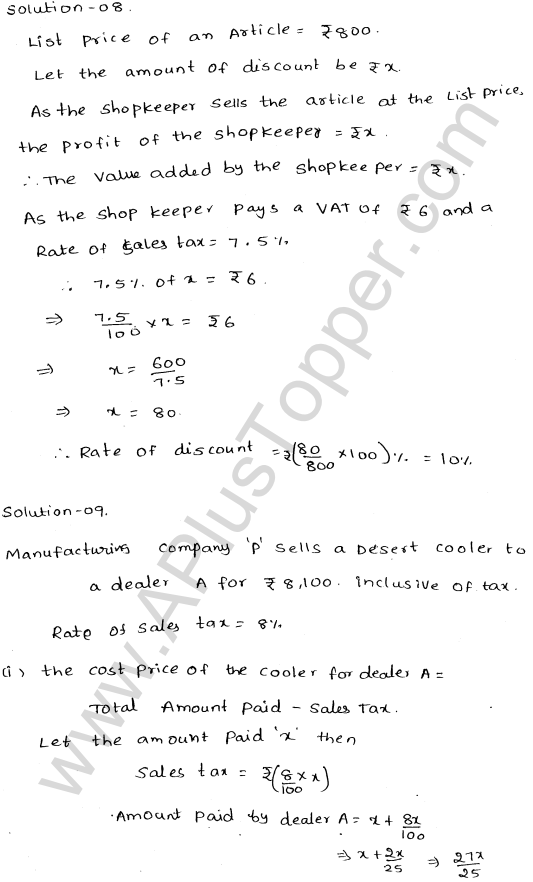 Solution-08.
List Price of an Article = ₹800.
Let the amount of discount be ₹x.
As the shopkeeper sells the article at the List price,
the profit of the shopkeeper = ₹x.
∴ The Value added by the shopkeeper = ₹x.
As the shop keeper pays a VAT of ₹6 and a
Rate of Sales tax = 7.5%
∴ 7.5% of x = ₹6.
⇒ 7.5/100 × x = ₹6
⇒ x = 600/7.5
⇒ x = 80.
∴ Rate of discount = ₹(80/800 ×100)% = 10%
Solution-09.
Manufacturing company 'P' sells a Desert cooler to
a dealer A for ₹8,100. inclusive of tax.
Rate of Sales tax = 8%
(i) the cost price of the cooler for dealer A =
Total Amount Paid - Sales Tax.
Let the amount Paid 'x' then
Sales tax = ₹(8/100 × x)
Amount paid by dealer A = x + 8x/100
⇒ x + 2x/25 ⇒ 27x/25
www.APlusTopper.com